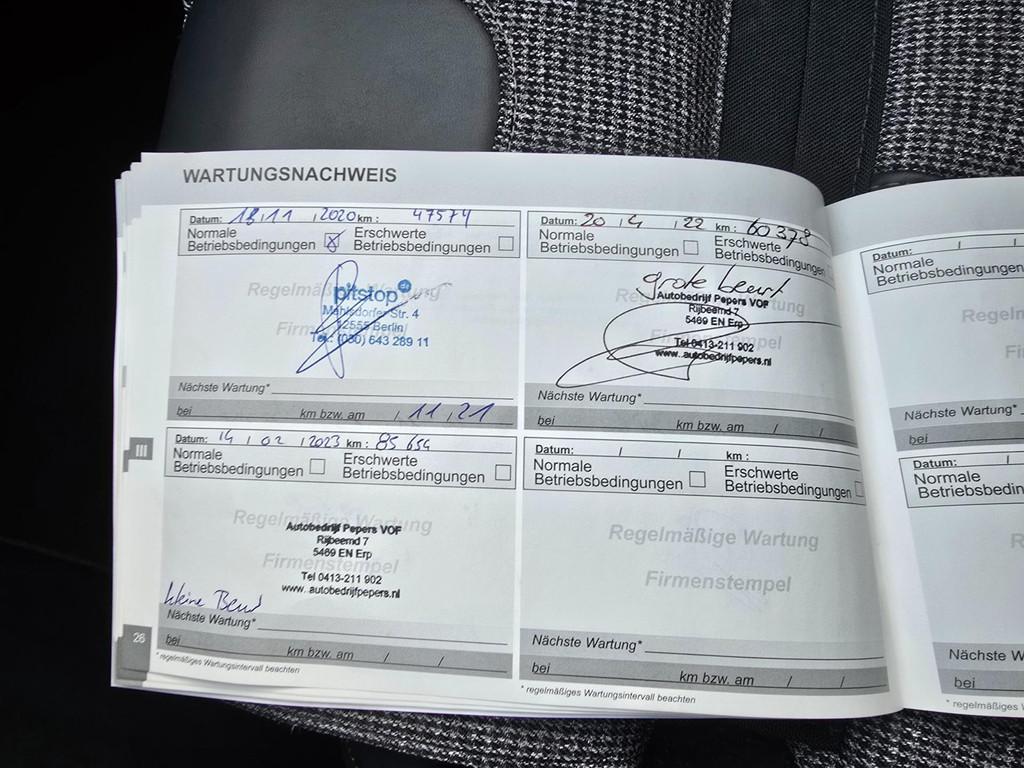 WARTUNGSNACHWEIS
Datum: 18 / 11 / 2020 km: 47574
Normale Betriebsbedingungen ☒ Erschwerte Betriebsbedingungen ☐
Regelmäßige Wartung
pitstop.de
Mahlsdorfer Str. 4
12555 Berlin
Tel.: (030) 643 289 11
Nächste Wartung*
bei km bzw. am / 11 / 21
Datum: 20 / 4 / 22 km: 60378
Normale Betriebsbedingungen ☐ Erschwerte Betriebsbedingungen
grote beurt
Autobedrijf Pepers VOF
Rijbeemd 7
5469 EN Erp
Tel 0413-211 902
www.autobedrijfpepers.nl
Nächste Wartung*
bei km bzw. am / /
III
Datum: 14 / 02 / 2023 km: 85654
Normale Betriebsbedingungen ☐ Erschwerte Betriebsbedingungen ☐
Regelmäßige Wartung
Firmenstempel
Autobedrijf Pepers VOF
Rijbeemd 7
5469 EN Erp
Tel 0413-211 902
www.autobedrijfpepers.nl
kleine Beurt
Nächste Wartung*
bei km bzw. am / /
* regelmäßiges Wartungsintervall beachten
26
Datum: / / km:
Normale Betriebsbedingungen ☐ Erschwerte Betriebsbedingungen ☐
Regelmäßige Wartung
Firmenstempel
Nächste Wartung*
bei km bzw. am / /
* regelmäßiges Wartungsintervall beachten
Datum: / /
Normale
Nächste Wartung*
bei
Datum: /
Normale
Nächste Wartung*
bei